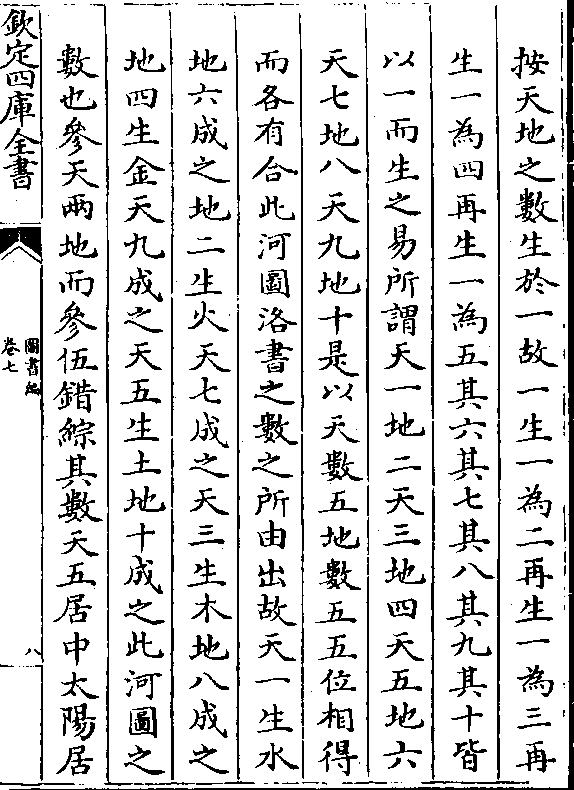 按天地之數生於一故一生一為二再生一為三再
生一為四再生一為五其六其七其八其九其十皆
以一而生之易所謂天一地二天三地四天五地六
天七地八天九地十是以天數五地數五五位相得
而各有合此河圖洛書之數之所由出故天一生水
地六成之地二生火天七成之天三生木地八成之
地四生金天九成之天五生土地十成之此河圖之
數也參天兩地而參伍錯綜其數天五居中太陽居
欽定四庫全書
圖書編
卷七
八